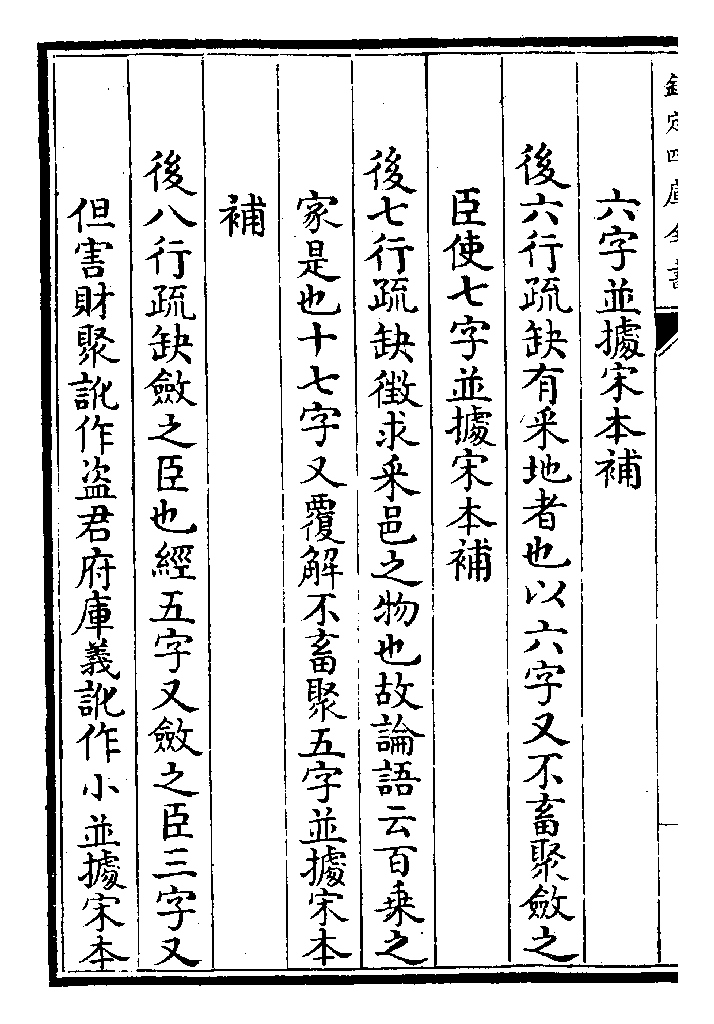 欽定四庫全書
六字並據宋本補
後六行疏缺有采地者也以六字又不畜聚斂之
臣使七字並據宋本補
後七行疏缺徴求采邑之物也故論語云百乗之
家是也十七字又覆解不畜聚五字並據宋本
補
後八行疏缺斂之臣也經五字又斂之臣三字又
但害財聚訛作盗君府庫義訛作小並據宋本